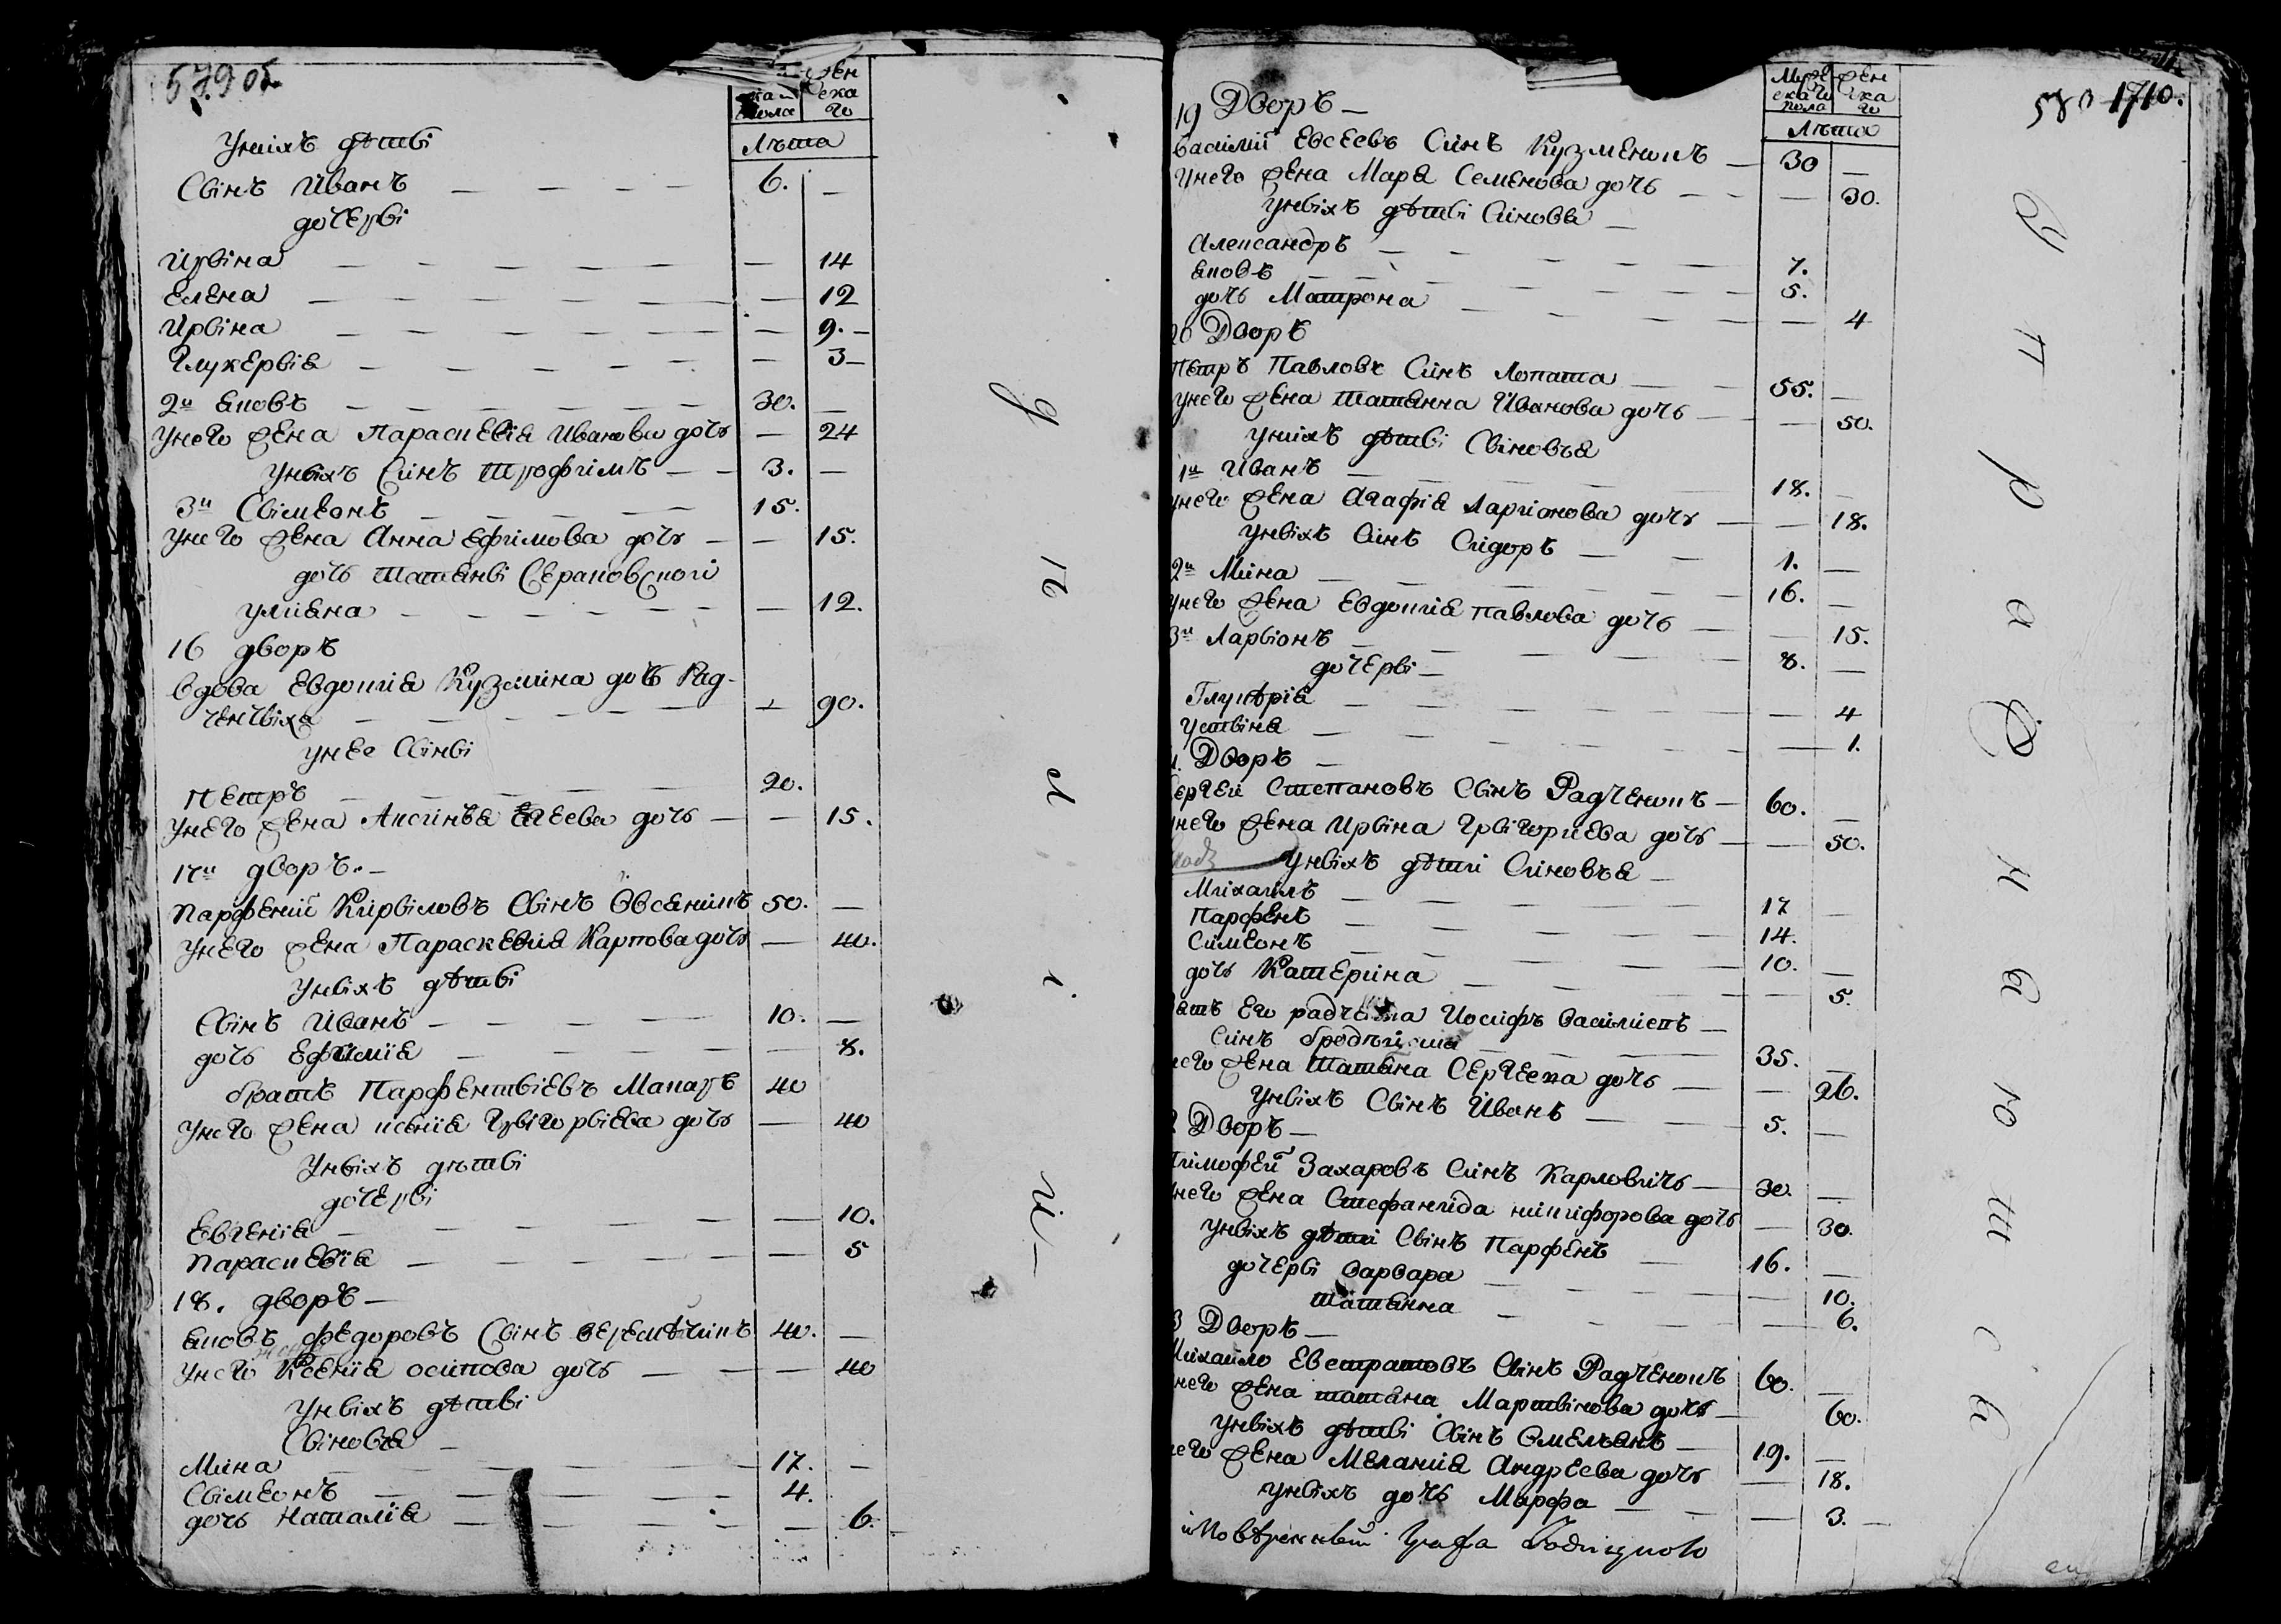 579 об.
жен
ска
го
ска
пола
Лѣта
Унихъ дѣтві
Свінъ Иванъ 6. —
дочерві
Ирвіна — 14
Елена — 12
Ирвіна — 9.
Глукервія — 3
2й Яковъ 30. —
Унего жена Параскевія Иванова дочь — 24
Унвіхъ Синъ Трофимъ 3. —
3й Свімеонъ 15.
Унего жена Анна Ефимова дочь — 15.
дочь Татянві
Улияна — 12.
16 дворъ
Вдова Евдокия Кузмина дочь Рад-
ченчвіха — 90.
унее Свінві
Петръ 20.
Унего жена Аксиньа дочь — 15.
17й дворъ.
Парфений Кирвіловъ Свінъ Овсяникъ 50. —
Унего жена Параскевия Карпова дочь — 40.
Унвіхъ дѣтві
Свінъ Иванъ 10. —
дочь Ефимія — 8.
братъ Парфентвіевъ Макаръ 40
Унего жена ксенія Грвігорвіева дочь — 40
Унвіхъ дѣтві
дочерві
Евгенія — 10.
Параскевія — 5
18. дворъ
Яковъ Федоровъ Свінъ 40. —
Унего жена Ксенія осипова дочь — 40
Унвіхъ дѣтві
Свіновья
Мина 17. —
Свімеонъ 4.
дочь Наталія — 6.
д
к
л
і
й
580 1710.
Муже
скаго
пола
жен
ска
го
Лѣта
19 Дворъ
Василий Евсеевъ Синъ Кузменокъ 30 —
Унего жена Маря Семенова дочь — 30.
Унвіхъ дѣтві Синовя
Александръ 7.
Яковъ 5.
дочь Матрона — 4
20 Дворъ
Петръ Павловъ Синъ Лопата 55. —
Унего жена Татянна Иванова дочь — 50.
Унихъ дѣтві Свіновья
1й Иванъ 18. —
Унего жена Агафія Ларионова дочь — 18.
Унвіхъ Синъ Сидоръ 1. —
2й Мина 16. —
Унего жена Евдокия Павлова дочь — 15.
3й Ларвіонъ 8. —
дочерві
Глукѣрія — 4
Уствіня — 1.
Дворъ
Сергей Степановъ Свінъ Радченокъ 60. —
Унего жена Ирвіна Грвігориева дочь — 50.
Унвіхъ дѣти Синовья
Михаилъ 17 —
Парфенъ 14.
Симеонъ 10. —
дочь Катерина — 5.
Его Иосифъ
Синъ 35. —
Унего жена Татяна Сергеева дочь — 26.
Унвіхъ Свінъ Иванъ 5. —
Дворъ
Тимофей Захаровъ Синъ Карловичъ 30. —
Унего жена Стефанида никифорова дочь — 30.
Унвіхъ дѣти Свінъ Парфенъ 16. —
дочерві Варвара — 10.
Татянна — 6.
Дворъ
Михайло Евстратовъ Свінъ Радченокъ 60. —
Унего жена татяна Мартвінова дочь — 60.
Унвіхъ дѣтві Свінъ Омельянъ 19. —
Унего жена Меланія Андреева дочь — 18.
Унвіхъ дочь Марфа — 3.
Повѣренный Графа
у
п
р
а
ж
н
я
ю
т
с
я